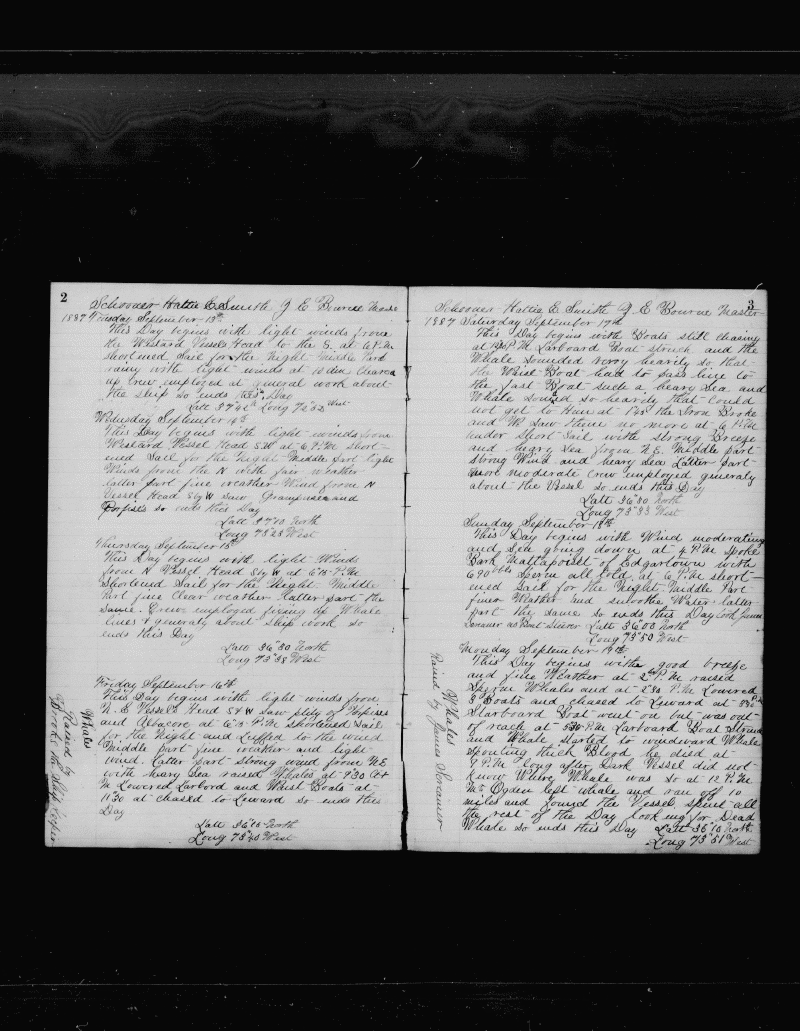 2
Schooner Hattie E Smith J E Bourne Master
1887 Tuesday September 13th
This Day begins with light winds from
the Westard Vessel Head to the S. at 6 P.M
shortened Sail for the Night Middle Part
rainy with light winds at 10 Clearea
up Crew employed at general work about
the ship so ends this Day
Latt 37°42 Long 72°52 West
Wednsday September 14th
This Day begins with light winds from
Westard Vessel Head SW at 6 P.M short-
ened Sail for the Night Middle Part light
Winds from the N with fair weather
latter part fine weather Wind from N
Vessel Head S by W saw Grampuses and
Porpises so ends this Day
Latt 37°10 North
Long 73°23 West
Thursday September 15th
This Day begins with light Winds
from N Vessel Head S by W at 6 15 P.M
Shortened Sail for the Night Middle
Part fine Clear weather Latter part the
same. Crew employed fixing up Whale
lines & generaly about ship work so
ends this Day
Latt 36°30 North
Long 73°38 West
Friday September 16th
This Day begins with light winds from
N. E Vessels Head SW saw plety of Porpises
and Albacore at 6 15 P.M shortened Sail
for the Night and Luffed to the wind
Middle part fine weather and light
wind. Latter part strong wind from NE
with heavy Sea raised Whales at 9 30 A
M Lowered Larbord and Waist Boats at
11 30 at chased to Leward so ends this
Day
Latt 36°15 North
Long 73°40 West
Whales
Raised by
3
Schooner Hattie E Smith J E Bourne Master
1887 Saturday September 17th
This Day begins with Boats still chasing
at P.M Larboard Boat struck and the
Whale sounded verry hearity so that
the Waist Boat had to pass line to
the fast Boat such a heavy Sea and
Whale sound so hearity that could
not get to Him at the Iron Broke
and We saw them no more at 6 P.M
under Short Sail with strong Breeze
and hevy Sea from N.E. Middle part
strong Wind and heavy sea Latter part
more moderate Crew employed generaly
about the Vessel so ends this Day
Latt 36°30 North
Long 73°33 West
Sunday September 18th
This Day begins with Wind moderating
and Sea going down at 4 P.M spoke
Bark Mattapoiset of Edgartown with
690 bbls Sperm all told at 6 P.M short-
ened Sail for the Night. Middle Part
finer Weather and smoothe Water latter
part the same so ends this Day Took James
Scramer as Boat Steerer Latt 36°03 North
Long 73°50 West
Monday September 19th
This Day begins withe good breeze
and fine Weather at 2 P.M raised
Sperm Whales and at 2 30 P.M Lowered
3 Boats and chased to Leward at
Starboard Boat went on but was out
of reach at 5 30 P.M Larboard Boat Struck
and Whale started to windward Whale
spouting thick Blood he died at
9 P.M long after Dark Vessel did not
know Where Whale was so at 12 P.M
Mr Ogden left whale and ran off 10
miles and found the Vessel, spent all
the rest of the Day looking for Dead
Whale so ends this Day Latt 36°10 North
Long 73°51 West
Whales
Raised by James Scramer